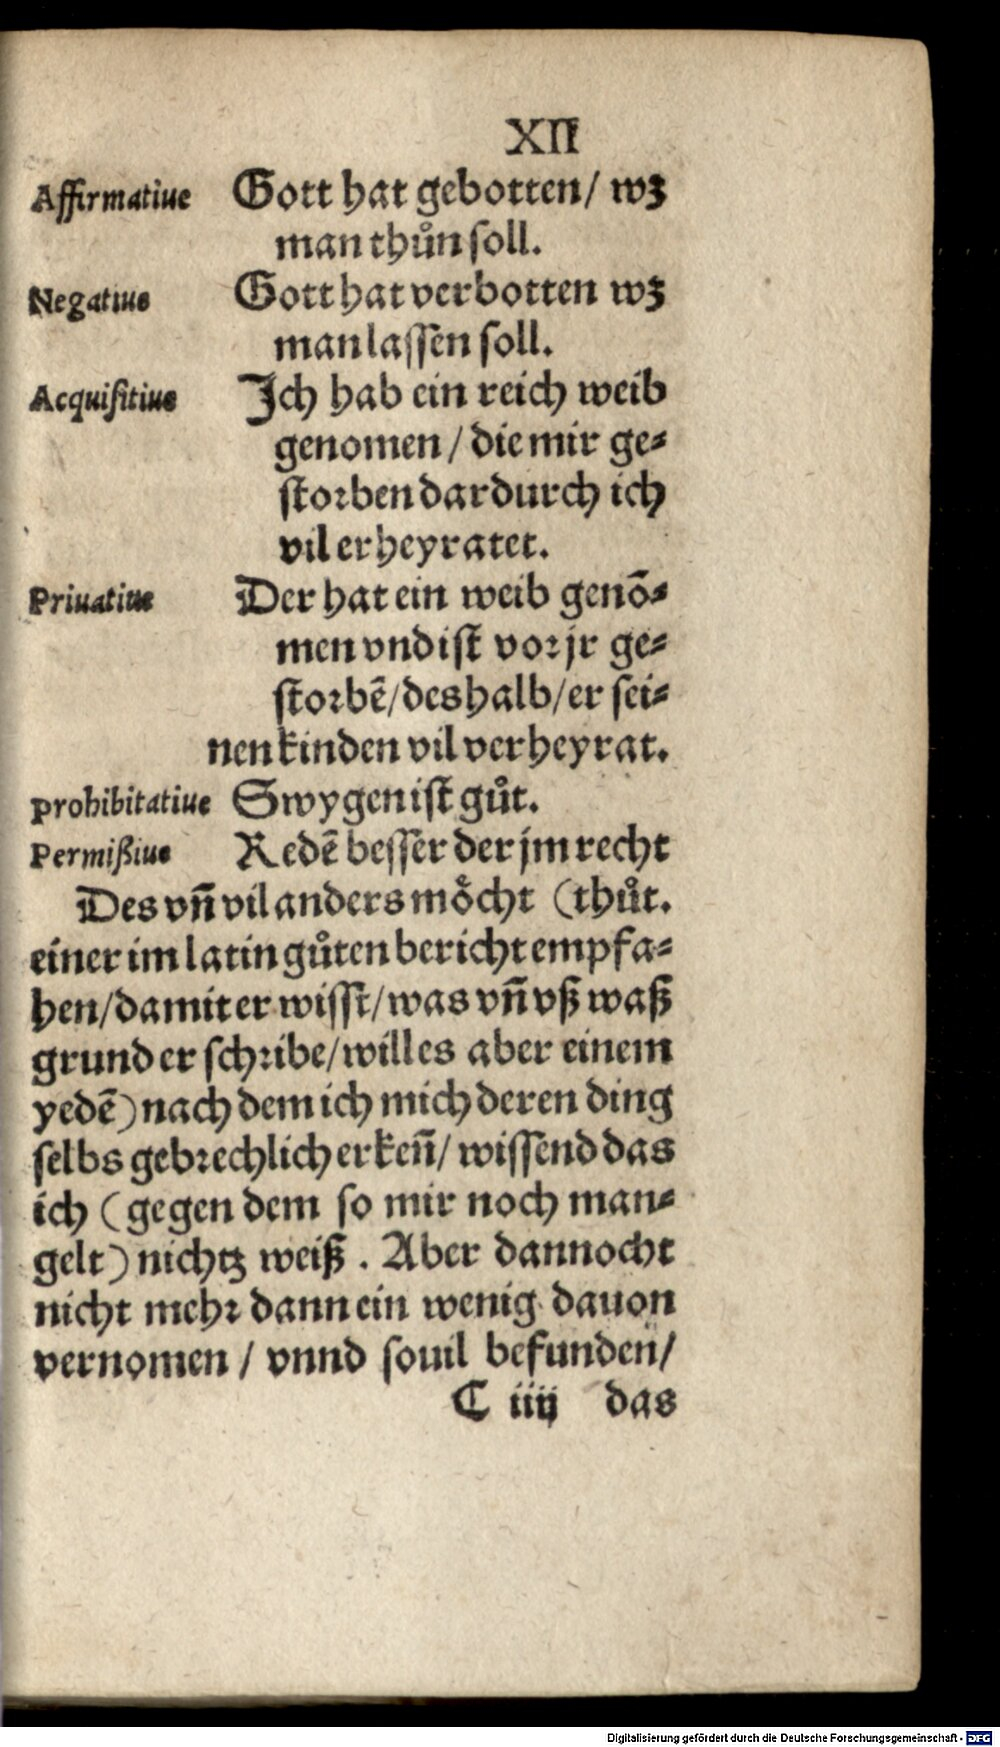 XII
Affirmatiue Gott hat gebotten/ wz
man thůn soll.
Negatiue Gott hat verbotten wz
man lassen soll.
Acquisitiue Ich hab ein reich weib
genomen / die mir ge⸗
storben dardurch ich
vil erheyratet.
Priuatiue Der hat ein weib genō⸗
men vnd ist vor jr ge⸗
storbē/deshalb/er sei⸗
nen kinden vil verheyrat.
prohibitatiue Swygen ist gůt.
Permißiue Redē besser der jm recht
Des vn̄ vil anders moͤcht (thůt.
einer im latin gůten bericht empfa⸗
hen/damit er wisst/was vn̄ vß waß
grund er schribe/will es aber einem
yedē) nach dem ich mich deren ding
selbs gebrechlich erken̄/ wissend das
ich (gegen dem so mir noch man⸗
gelt) nichtz weiß. Aber dannocht
nicht mehr dann ein wenig dauon
vernomen / vnnd souil befunden/
C iiij das
Digitalisierung gefördert durch die Deutsche Forschungsgemeinschaft - DFG